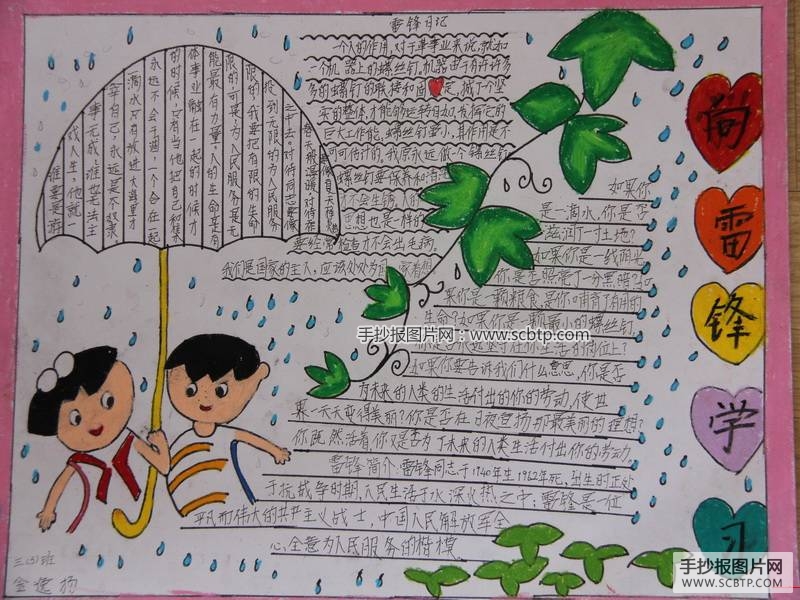 雷锋日记
一个人的作用,对于革命事业来说,就和
一个机器上的螺丝钉。机器由于有许许多
多的螺丝钉的联接和固定,成了个坚
实的整体,才能够运转自如,发挥它的
巨大工作能。螺丝钉虽小,其作用是不
可估计的,我愿永远做一个螺丝钉
螺丝钉要保养和清洗
不会生锈。人的
思想也是一样的
要经常检查才不会出毛病。
我们是国家的主人,应该处处为国家着想
之中去。对待同志要像
春天般温暖,对待
投到无限的为人民服务
限的,我要把有限的生命
限的,可是,为人民服务是无
能最有力量。人的生命是有
体事业融在一起的时候才
的时候,只有当他把自己和集
永远不会干涸,一个人在一起
滴水只有放进大海里才
宰自己,永远是个奴隶。
事无成,谁
戏人生,他就一
谁要是游
如果你
是一滴水,你是否
滋润了一寸土地?
如果你是一线阳光
你是否照亮了一分黑暗?如
果你是一颗粮食,是你哺育了有用的
生命?如果你是一颗最小的螺丝钉
你是否永远坚守在你生活的岗位上?
如果你要告诉我们什么意思,你是否
为未来的人类的生活付出你的劳动,使世
界一天天变得美丽?你是否在日夜宣扬那最美丽的理想?
你既然活着,你又是否为了未来的人类生活付出你的劳动
雷锋简介:雷锋同志于1940年生1962年死,出生时正处
于抗战争时期,人民生活于水深火热之中。雷锋是一位
平凡而伟大的共产主义战士,中国人民解放军全
心全意为人民服务的楷模
向
雷
锋
学
习
三(3)班
手抄报图片网
www.scbtp.com
手抄报图片网
WWW.SCBTP.COM